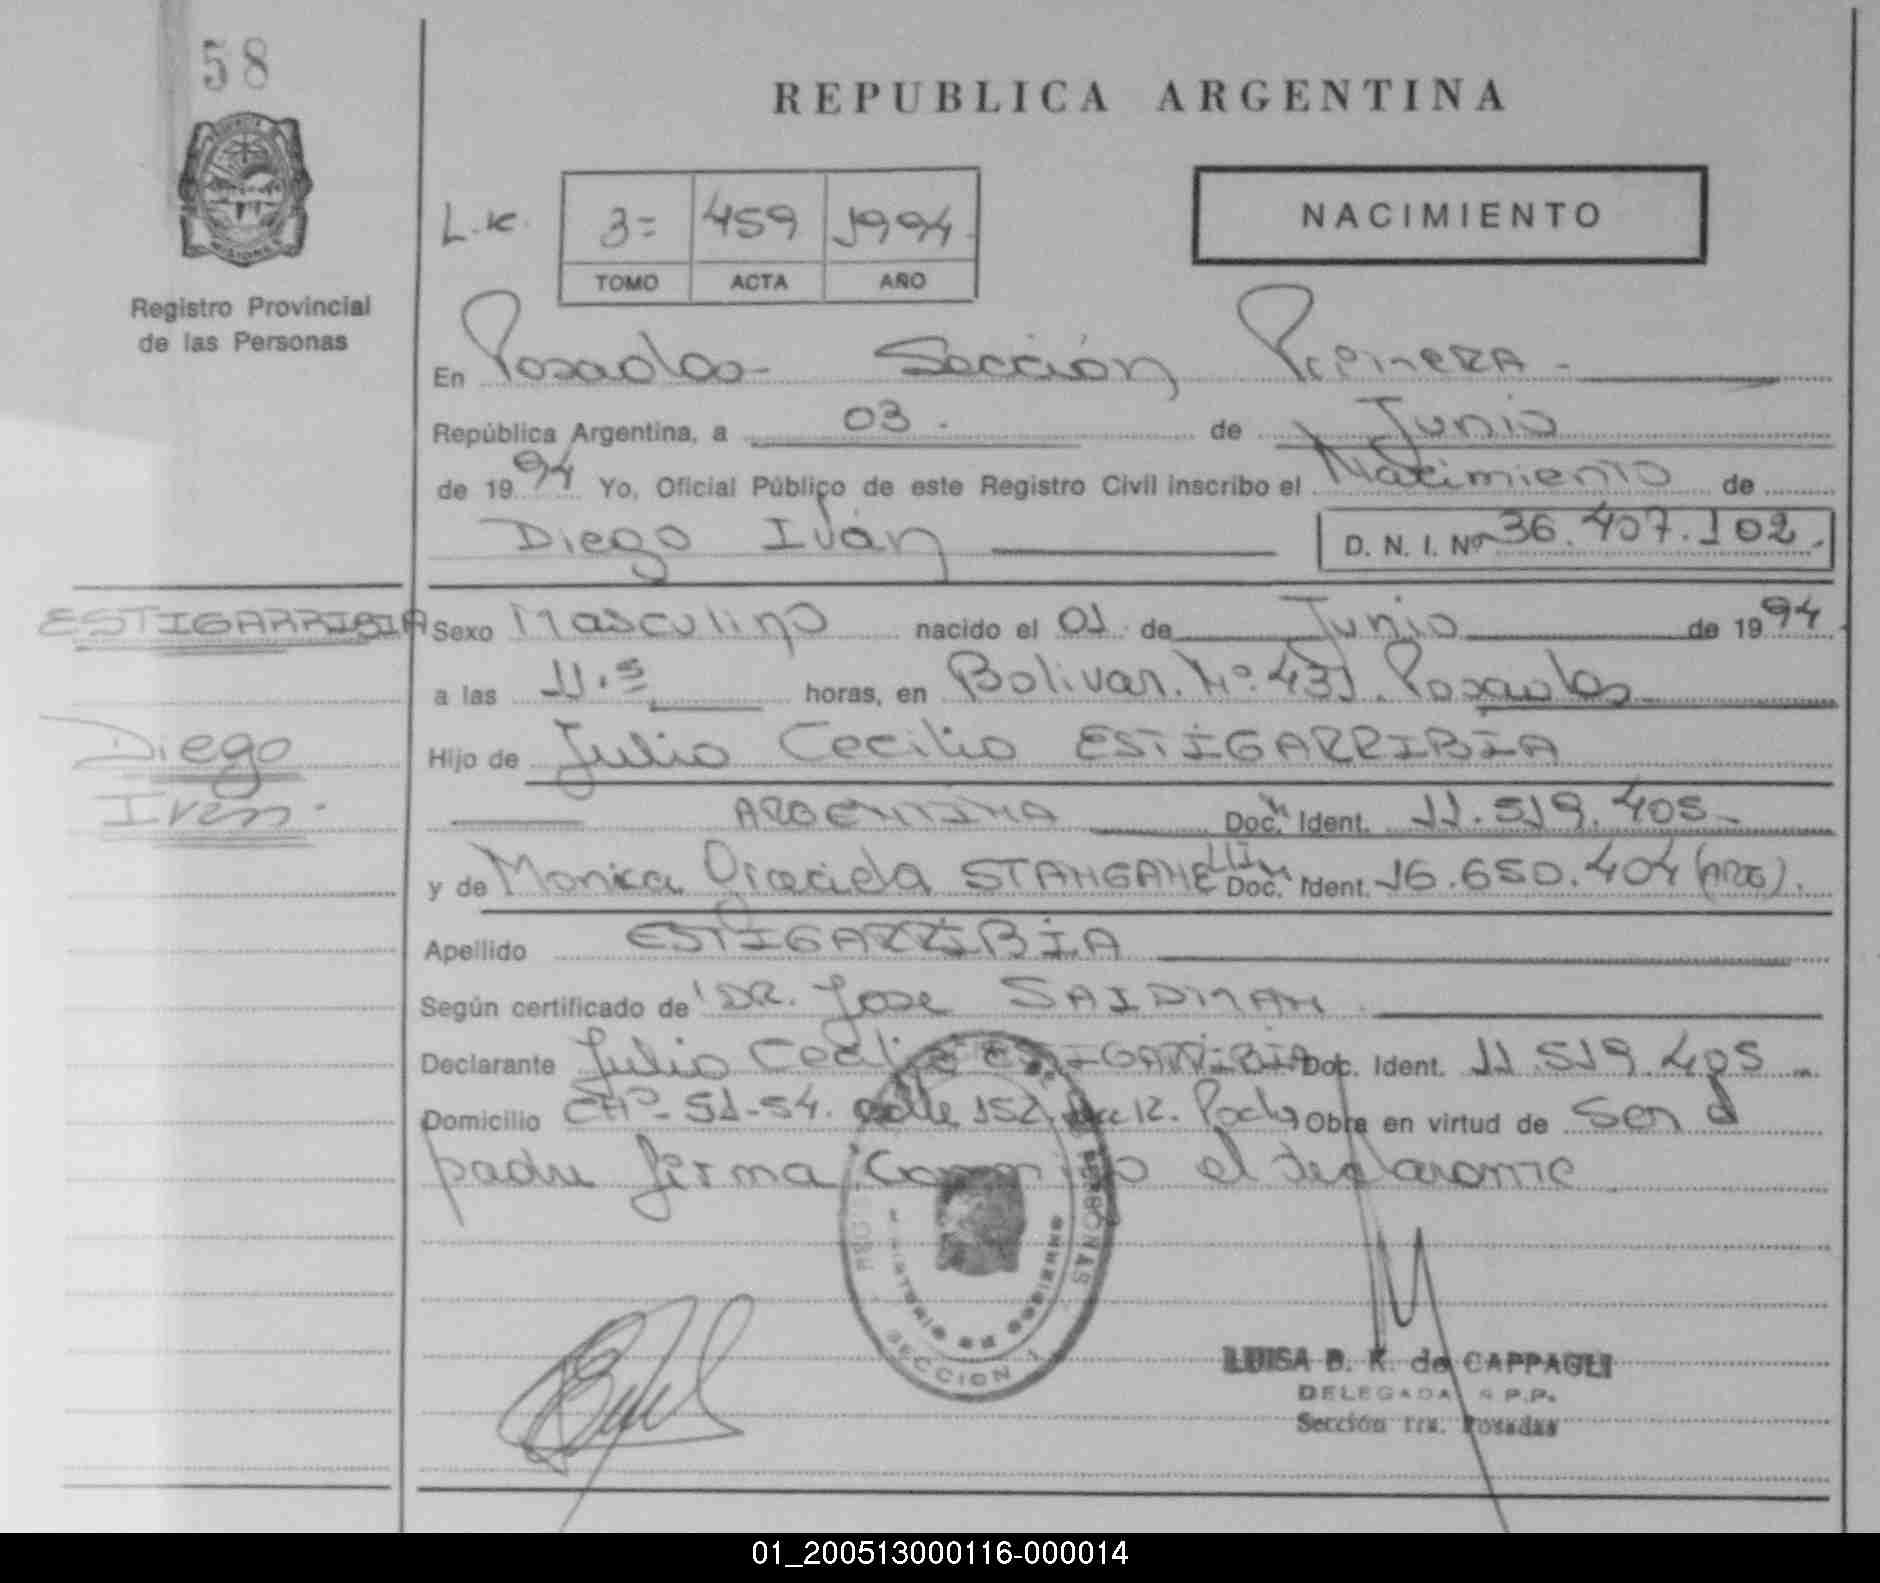 58
REPUBLICA ARGENTINA
NACIMIENTO
3= 459 1994
TOMO ACTA AÑO
Registro Provincial
de las Personas
En Posadas - Sección Primera -
República Argentina, a 03. de Junio
de 1994 Yo, Oficial Público de este Registro Civil inscribo el Nacimiento de
Diego Iván D. N. I. Nº 36.407.102.
ESTIGARRIBIA
Diego
Ivan.
Sexo Masculino nacido el 01 de Junio de 1994
a las 11.5 horas, en Bolivar. Nº 431. Posadas
Hijo de Julio Cecilio ESTIGARRIBIA
ARGENTINA Doc. Ident. 11.519.405-
y de Monica Graciela STANGANELLI Doc. Ident. 16.650.404 (ARG).
Apellido ESTIGARRIBIA
Según certificado de DR. Jose SAIDMAN
Declarante Julio Cecilio ESTIGARRIBIA Doc. Ident. 11.519.405
Domicilio CHº- 51-54. calle 152 12. Pdas Obra en virtud de ser el
padre firma Conmigo el declarante
PERSONAS
MINISTERIO DE GOBIERNO
SECCION 1
LUISA B. K. de CAPPAGLI
DELEGADA R.P.P.
Sección 1ra. Posadas
01_200513000116-000014